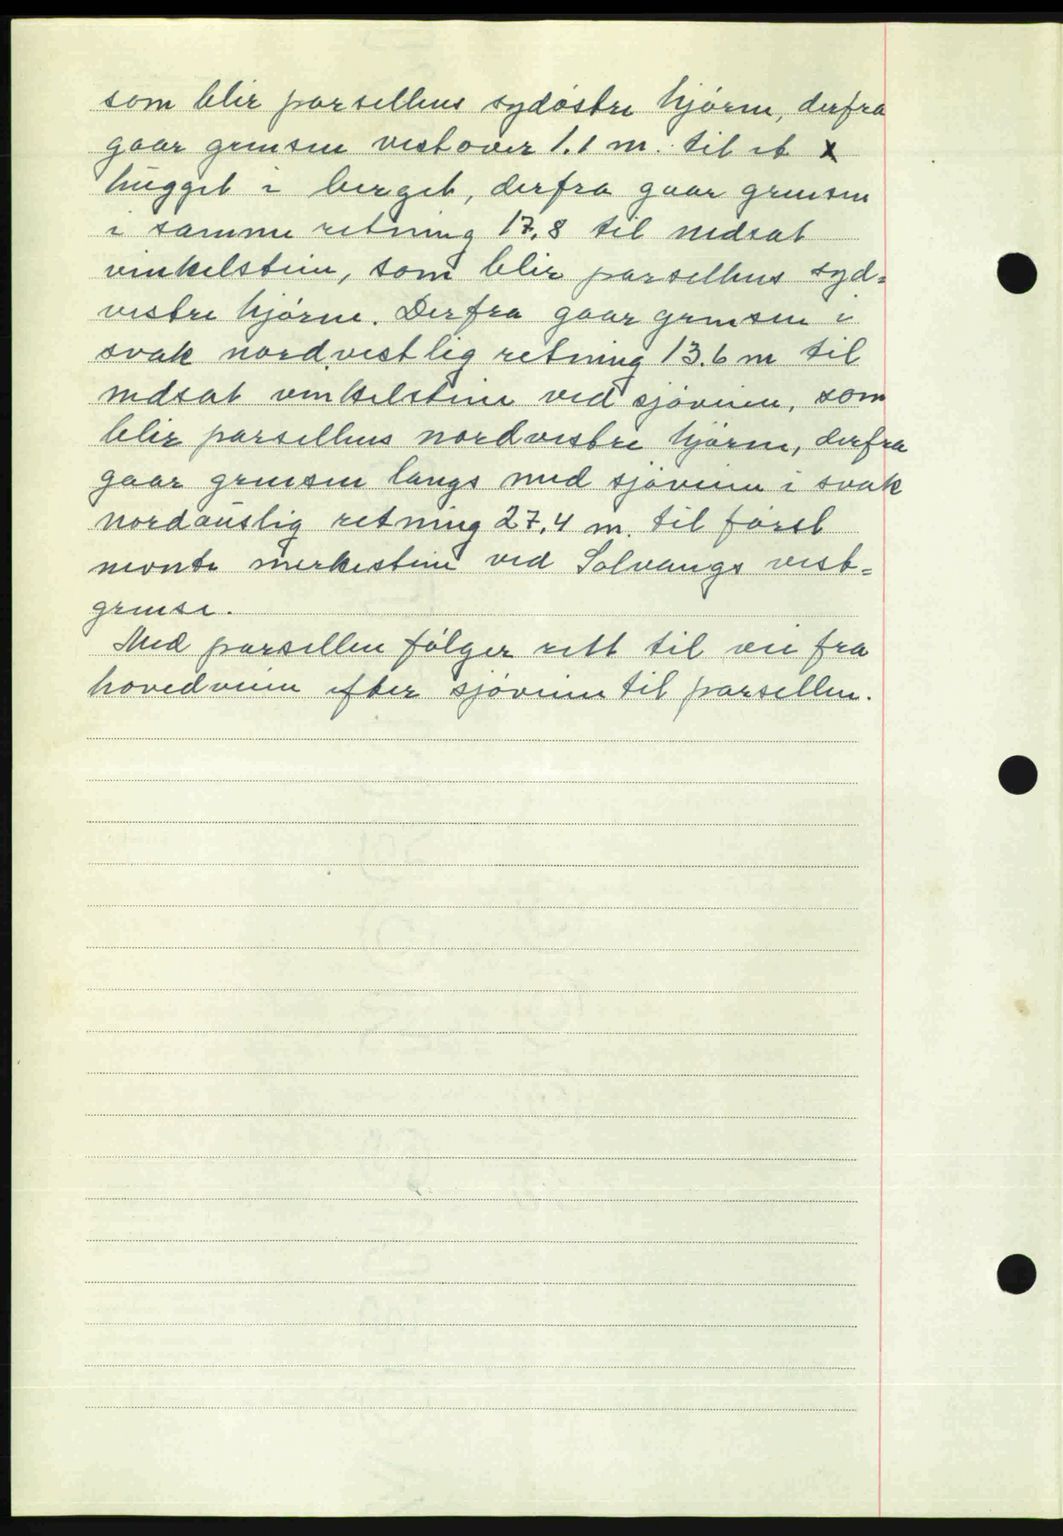 som blir parsellens sydöstre hjörne, derfra
gaar grensen vestover 1.1 m. til et x
hugget i berget, derfra gaar grensen
i samme retning 17,8 til nedsat
vinkelstein, som blir parsellens syd=
vestre hjörne. Derfra gaar grensen i
svak nordvestlig retning 13.6 m til
nedsat vinkelstein ved sjöveien, som
blir parsellens nordvestre hjörne, derfra
gaar grensen langs med sjöveien i svak
nordaustlig retning 27,4 m. til först
nevnte merkestein ved Solvangs vest=
grense.
Med parsellen fölger rett til vei fra
hovedveien efter sjöveien til parsellen.